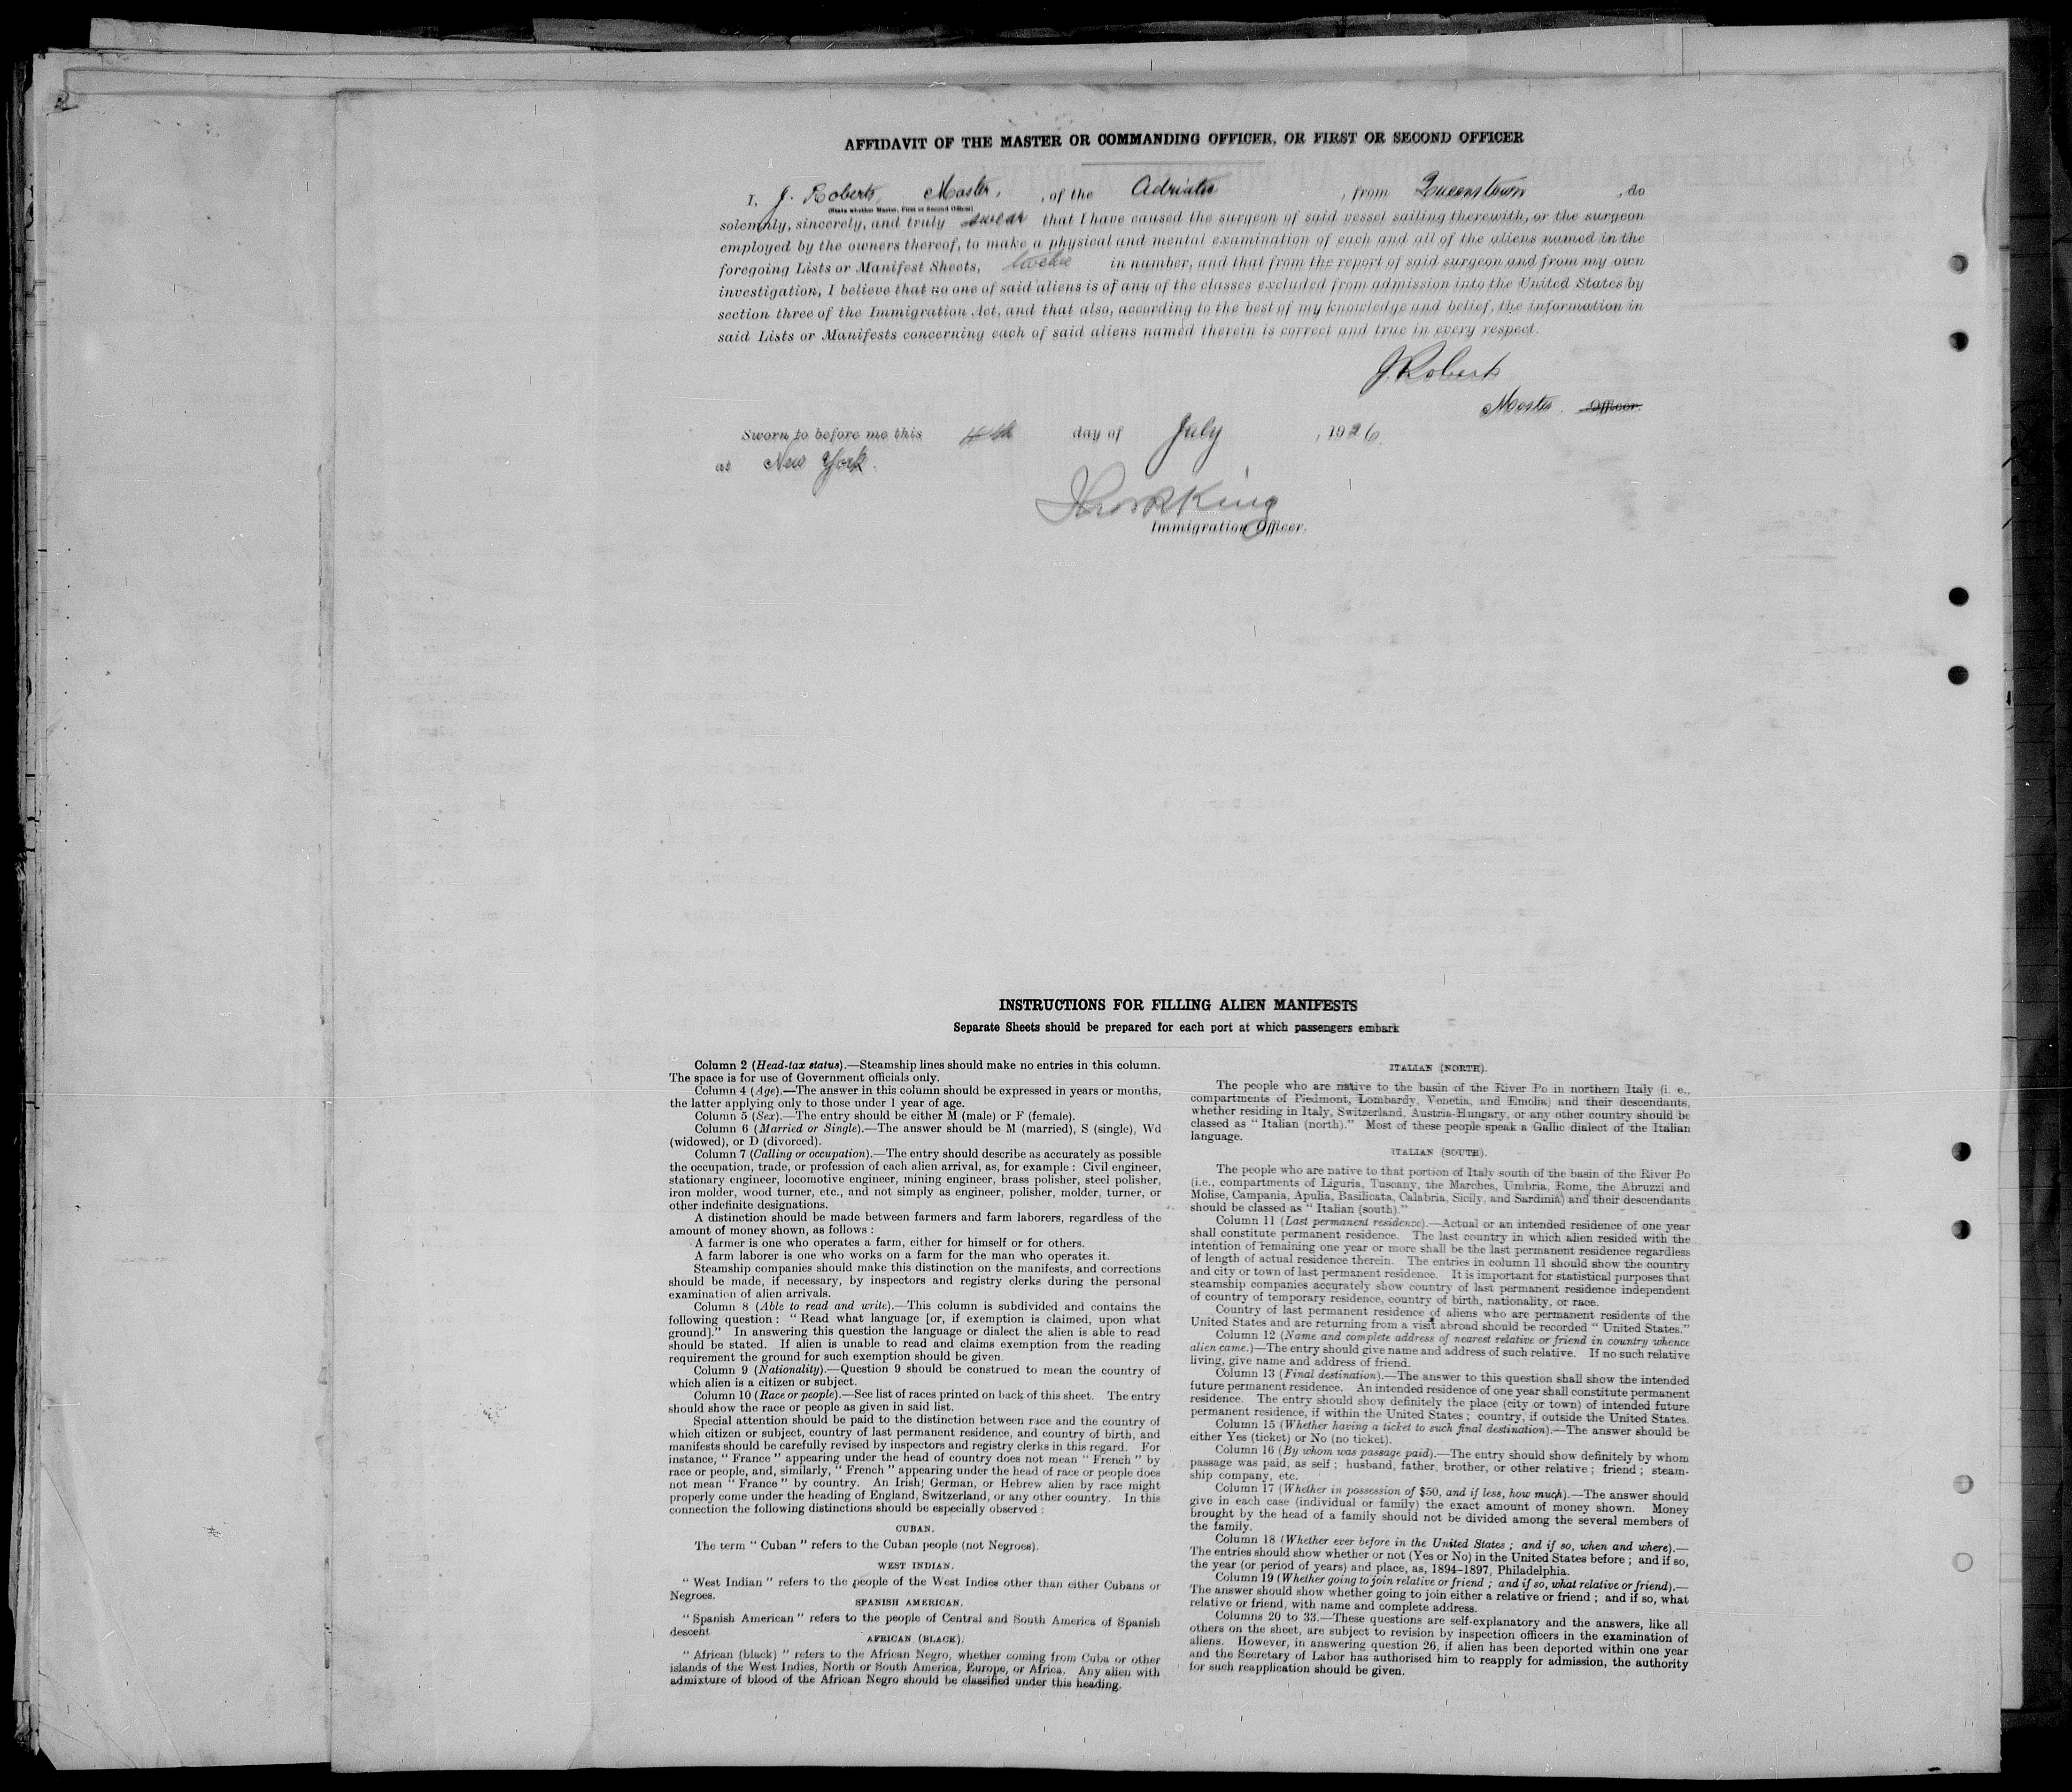 AFFIDAVIT OF THE MASTER OR COMMANDING OFFICER, OR FIRST OR SECOND OFFICER
I, J. Roberts, Master, , of the Adriatic , from Queenstown , do
(State whether Master, First or Second Officer)
solemnly, sincerely, and truly swear that I have caused the surgeon of said vessel sailing therewith, or the surgeon
employed by the owners thereof, to make a physical and mental examination of each and all of the aliens named in the
foregoing Lists or Manifest Sheets, twelve in number, and that from the report of said surgeon and from my own
investigation, I believe that no one of said aliens is of any of the classes excluded from admission into the United States by
section three of the Immigration Act, and that also, according to the best of my knowledge and belief, the information in
said Lists or Manifests concerning each of said aliens named therein is correct and true in every respect.
J. Roberts
Master. Officer.
Sworn to before me this day of July , 1926.
at New York.
King
Immigration Officer.
INSTRUCTIONS FOR FILLING ALIEN MANIFESTS
Separate Sheets should be prepared for each port at which passengers embark
Column 2 (Head-tax status).—Steamship lines should make no entries in this column.
The space is for use of Government officials only.
Column 4 (Age).—The answer in this column should be expressed in years or months,
the latter applying only to those under 1 year of age.
Column 5 (Sex).—The entry should be either M (male) or F (female).
Column 6 (Married or Single).—The answer should be M (married), S (single), Wd
(widowed), or D (divorced).
Column 7 (Calling or occupation).—The entry should describe as accurately as possible
the occupation, trade, or profession of each alien arrival, as, for example : Civil engineer,
stationary engineer, locomotive engineer, mining engineer, brass polisher, steel polisher,
iron molder, wood turner, etc., and not simply as engineer, polisher, molder, turner, or
other indefinite designations.
A distinction should be made between farmers and farm laborers, regardless of the
amount of money shown, as follows :
A farmer is one who operates a farm, either for himself or for others.
A farm laborer is one who works on a farm for the man who operates it.
Steamship companies should make this distinction on the manifests, and corrections
should be made, if necessary, by inspectors and registry clerks during the personal
examination of alien arrivals.
Column 8 (Able to read and write).—This column is subdivided and contains the
following question : " Read what language [or, if exemption is claimed, upon what
ground]." In answering this question the language or dialect the alien is able to read
should be stated. If alien is unable to read and claims exemption from the reading
requirement the ground for such exemption should be given.
Column 9 (Nationality).—Question 9 should be construed to mean the country of
which alien is a citizen or subject.
Column 10 (Race or people).—See list of races printed on back of this sheet. The entry
should show the race or people as given in said list.
Special attention should be paid to the distinction between race and the country of
which citizen or subject, country of last permanent residence, and country of birth, and
manifests should be carefully revised by inspectors and registry clerks in this regard. For
instance, " France " appearing under the head of country does not mean " French " by
race or people, and, similarly, " French " appearing under the head of race or people does
not mean " France " by country. An Irish, German, or Hebrew alien by race might
properly come under the heading of England, Switzerland, or any other country. In this
connection the following distinctions should be especially observed :
CUBAN.
The term " Cuban " refers to the Cuban people (not Negroes).
WEST INDIAN.
" West Indian " refers to the people of the West Indies other than either Cubans or
Negroes.
SPANISH AMERICAN.
" Spanish American " refers to the people of Central and South America of Spanish
descent
AFRICAN (BLACK).
" African (black) " refers to the African Negro, whether coming from Cuba or other
islands of the West Indies, North or South America, Europe, or Africa. Any alien with
admixture of blood of the African Negro should be classified under this heading.
ITALIAN (NORTH).
The people who are native to the basin of the River Po in northern Italy (i. e.,
compartments of Piedmont, Lombardy, Venetia, and Emolia) and their descendants,
whether residing in Italy, Switzerland, Austria-Hungary, or any other country should be
classed as " Italian (north)." Most of these people speak a Gallic dialect of the Italian
language.
ITALIAN (SOUTH).
The people who are native to that portion of Italy south of the basin of the River Po
(i.e., compartments of Liguria, Tuscany, the Marches, Umbria, Rome, the Abruzzi and
Molise, Campania, Apulia, Basilicata, Calabria, Sicily, and Sardinia) and their descendants
should be classed as " Italian (south)."
Column 11 (Last permanent residence).—Actual or an intended residence of one year
shall constitute permanent residence. The last country in which alien resided with the
intention of remaining one year or more shall be the last permanent residence regardless
of length of actual residence therein. The entries in column 11 should show the country
and city or town of last permanent residence. It is important for statistical purposes that
steamship companies accurately show country of last permanent residence independent
of country of temporary residence, country of birth, nationality, or race.
Country of last permanent residence of aliens who are permanent residents of the
United States and are returning from a visit abroad should be recorded " United States."
Column 12 (Name and complete address of nearest relative or friend in country whence
alien came.)—The entry should give name and address of such relative. If no such relative
living, give name and address of friend.
Column 13 (Final destination).—The answer to this question shall show the intended
future permanent residence. An intended residence of one year shall constitute permanent
residence. The entry should show definitely the place (city or town) of intended future
permanent residence, if within the United States ; country, if outside the United States.
Column 15 (Whether having a ticket to such final destination).—The answer should be
either Yes (ticket) or No (no ticket).
Column 16 (By whom was passage paid).—The entry should show definitely by whom
passage was paid, as self ; husband, father, brother, or other relative ; friend ; steam-
ship company, etc.
Column 17 (Whether in possession of $50, and if less, how much).—The answer should
give in each case (individual or family) the exact amount of money shown. Money
brought by the head of a family should not be divided among the several members of
the family.
Column 18 (Whether ever before in the United States ; and if so, when and where).—
The entries should show whether or not (Yes or No) in the United States before ; and if so,
the year (or period of years) and place, as, 1894–1897, Philadelphia.
Column 19 (Whether going to join relative or friend ; and if so, what relative or friend).—
The answer should show whether going to join either a relative or friend ; and if so, what
relative or friend, with name and complete address.
Columns 20 to 33.—These questions are self-explanatory and the answers, like all
others on the sheet, are subject to revision by inspection officers in the examination of
aliens. However, in answering question 26, if alien has been deported within one year
and the Secretary of Labor has authorised him to reapply for admission, the authority
for such reapplication should be given.